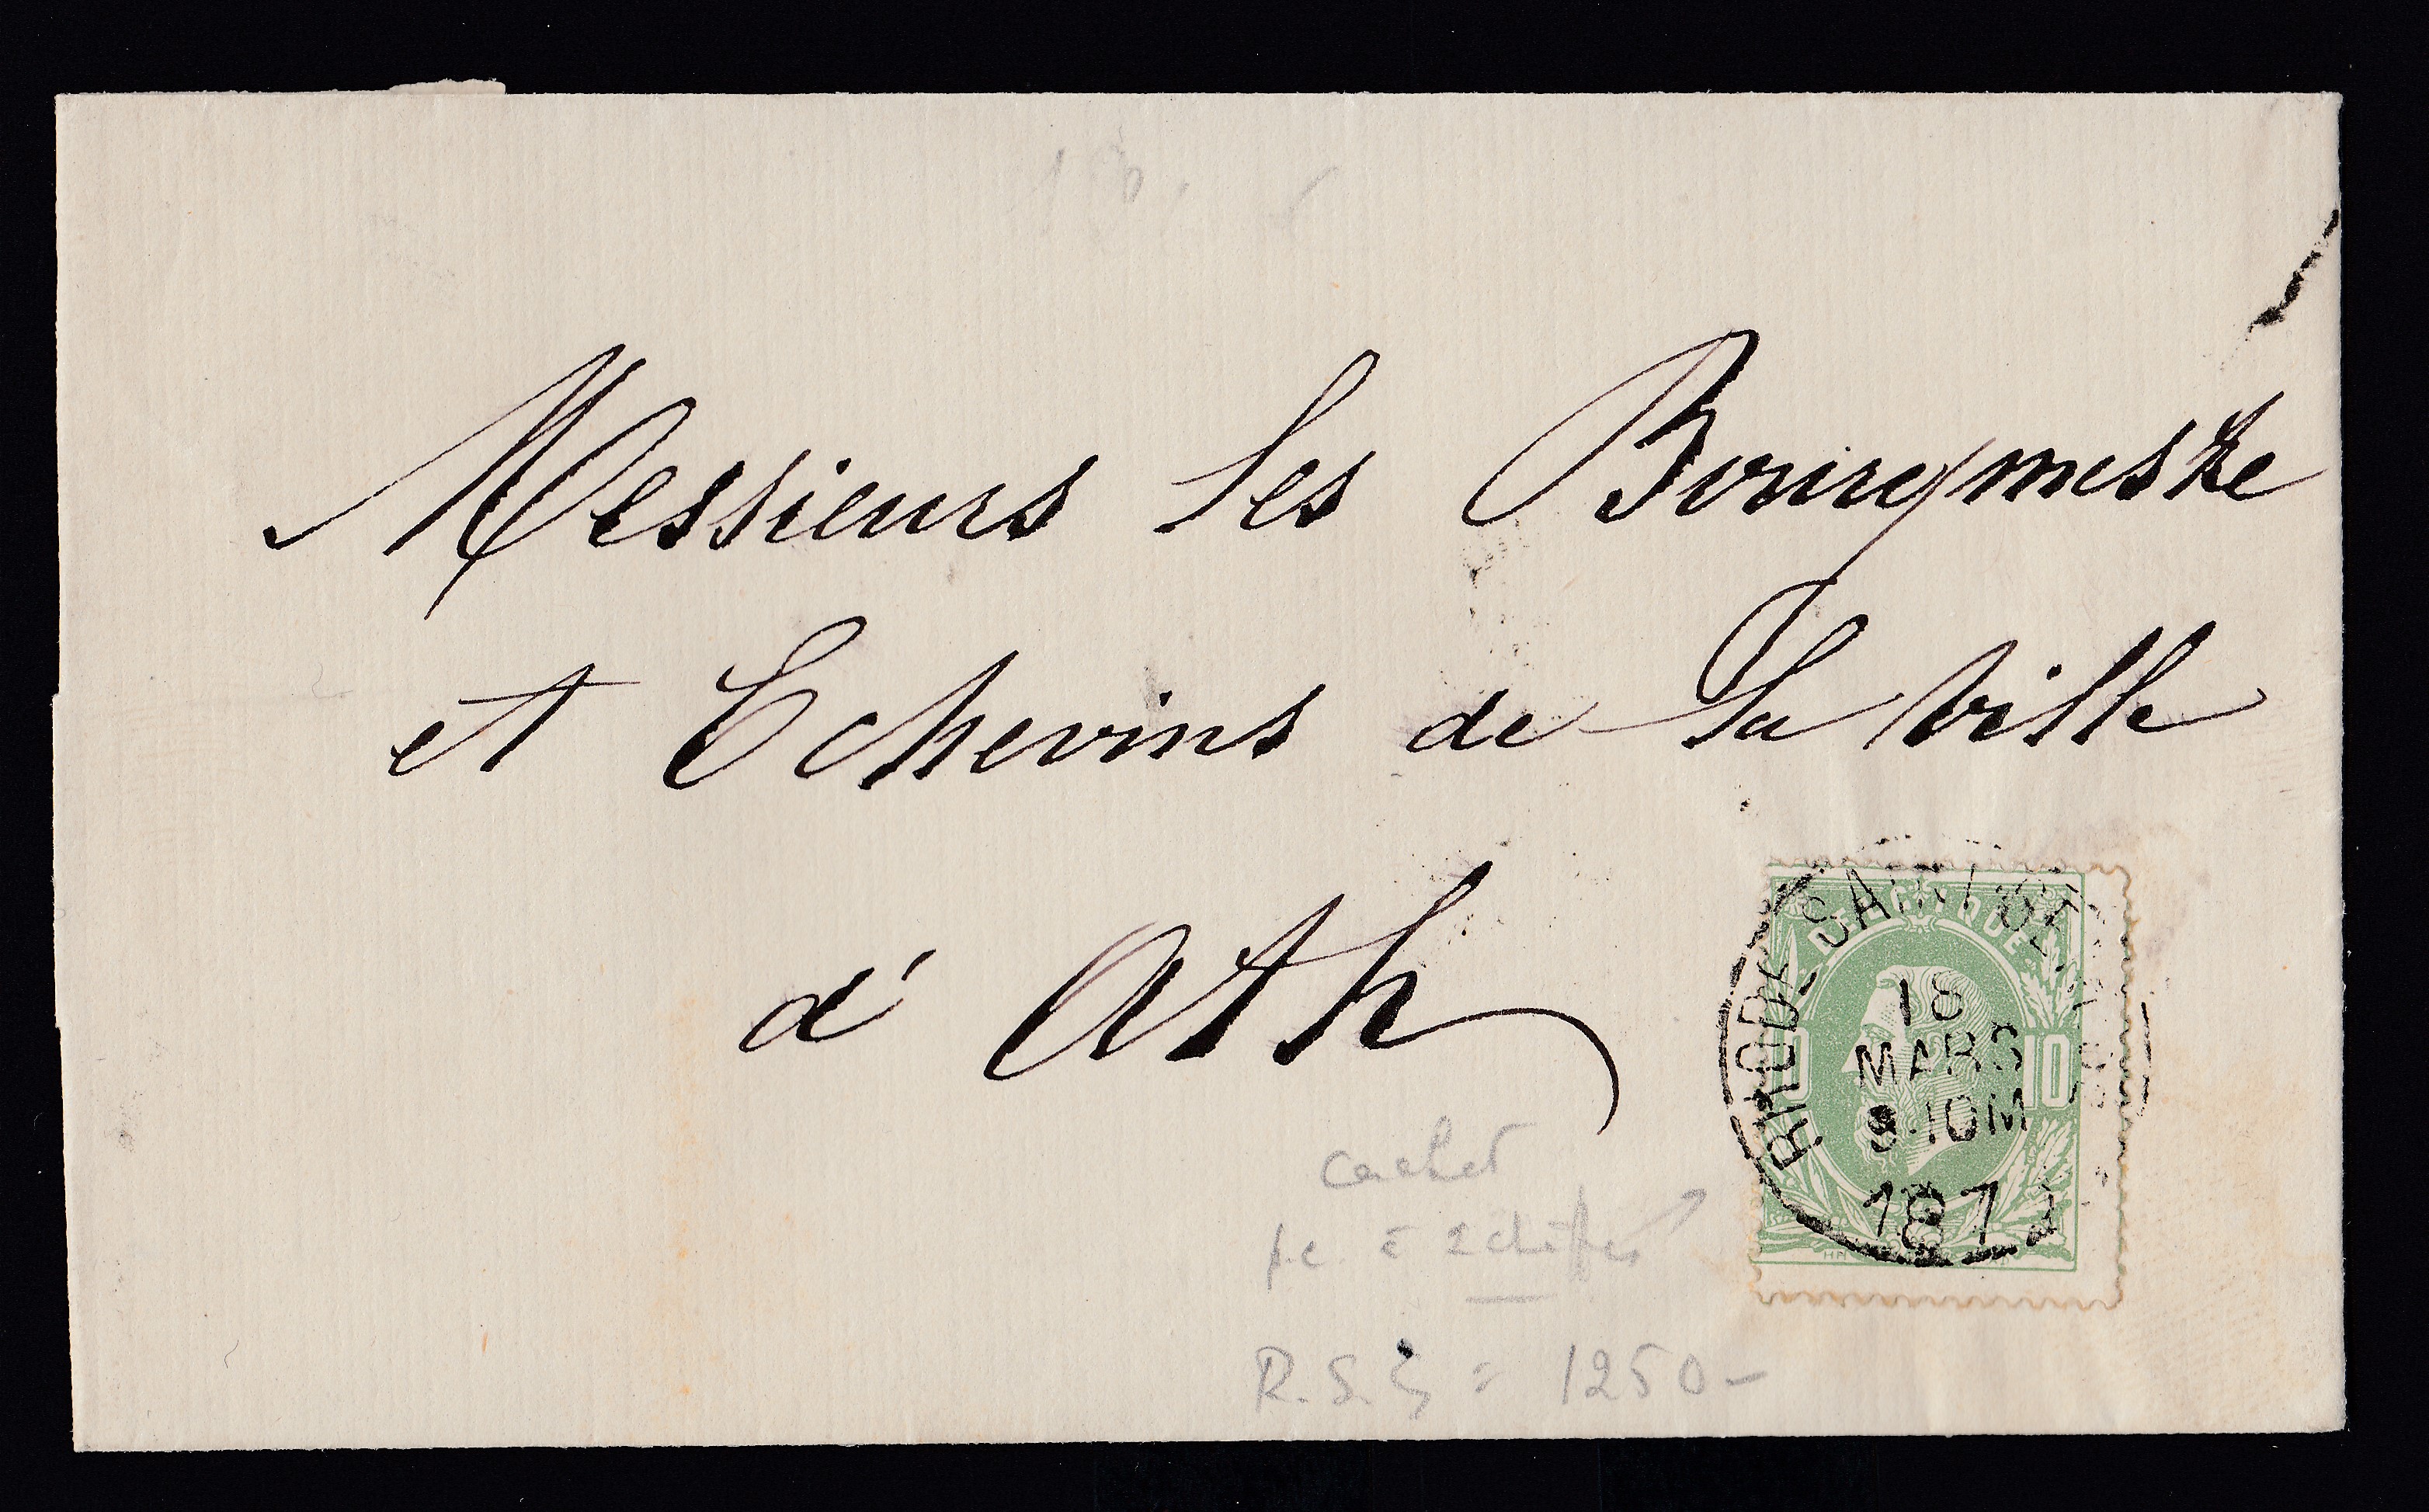 Messieurs les Bourgmestre
et Echevins de la ville
à Ath
BELGIQUE
RHODE SAINT GEN
18
MARS
9-10M
187
10
cachet
à 2 chiffres
R.S.G = 1250-